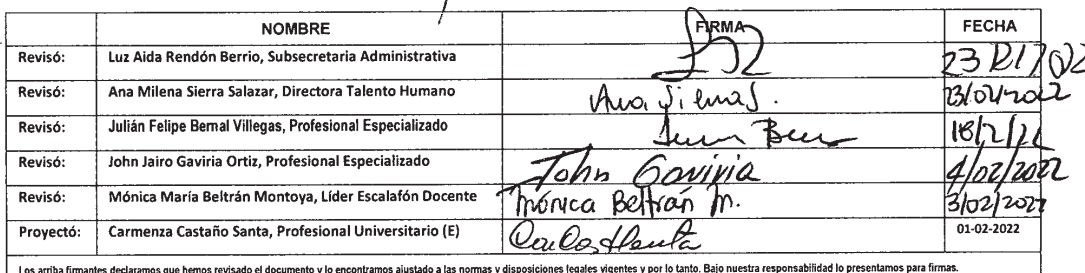 NOMBRE FIRMA FECHA
Revisó: Luz Aida Rendón Berrio, Subsecretaria Administrativa
Revisó: Ana Milena Sierra Salazar, Directora Talento Humano Ana Sierra S. 23/02/2022
Revisó: Julián Felipe Bernal Villegas, Profesional Especializado 18/2/22
Revisó: John Jairo Gaviria Ortiz, Profesional Especializado John Gaviria 4/02/2022
Revisó: Mónica María Beltrán Montoya, Líder Escalafón Docente Mónica Beltrán M. 3/02/2022
Proyectó: Carmenza Castaño Santa, Profesional Universitario (E) 01-02-2022
Los arriba firmantes declaramos que hemos revisado el documento y lo encontramos ajustado a las normas y disposiciones legales vigentes y por lo tanto. Bajo nuestra responsabilidad lo presentamos para firmas.